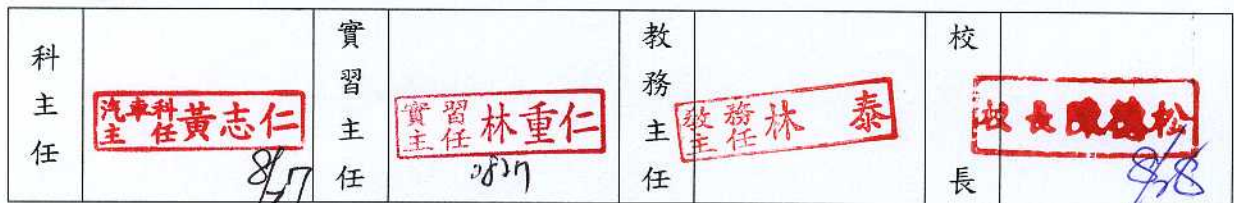 科主任
汽車科
主任 黃志仁
8/27
實習主任
實習
主任 林重仁
0827
教務主任
教務
主任 林泰
校長
校長陳德松
8/28